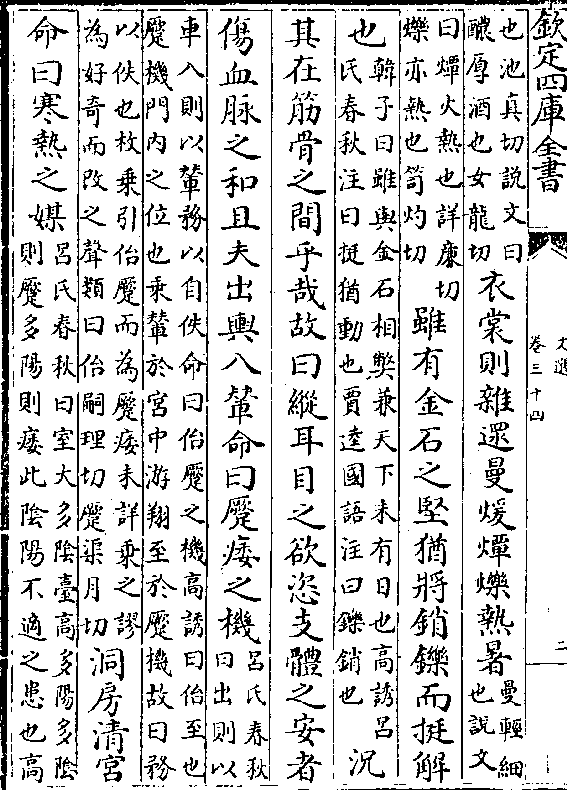 欽定四庫全書
文選
卷三十四
二
也池真切說文曰
醲厚酒也女龍切
衣裳則雜遝曼煖燂爍熱暑
曼輕細
也說文
曰燂火熱也詳廉切
爍亦熱也笥灼切
雖有金石之堅猶將銷鑠而挺解
也
韓子曰雖與金石相弊兼天下未有日也高誘呂
氏春秋注曰挺猶動也賈逵國語注曰鑠銷也
況
其在筋骨之間乎哉故曰縱耳目之欲恣支體之安者
傷血脉之和且夫出輿入輦命曰蹷痿之機
呂氏春秋
曰出則以
車入則以輦務以自佚命曰佁蹷之機高誘曰佁至也
蹷機門内之位也乘輦於宮中游翔至於蹷機故曰務
以佚也枚乘引佁蹷而為蹷痿未詳乘之謬
為好奇而改之聲類曰佁嗣理切蹷渠月切
洞房清宮
命曰寒熱之媒
呂氏春秋曰室大多陰臺高多陽多陰
則蹷多陽則痿此陰陽不適之患也高